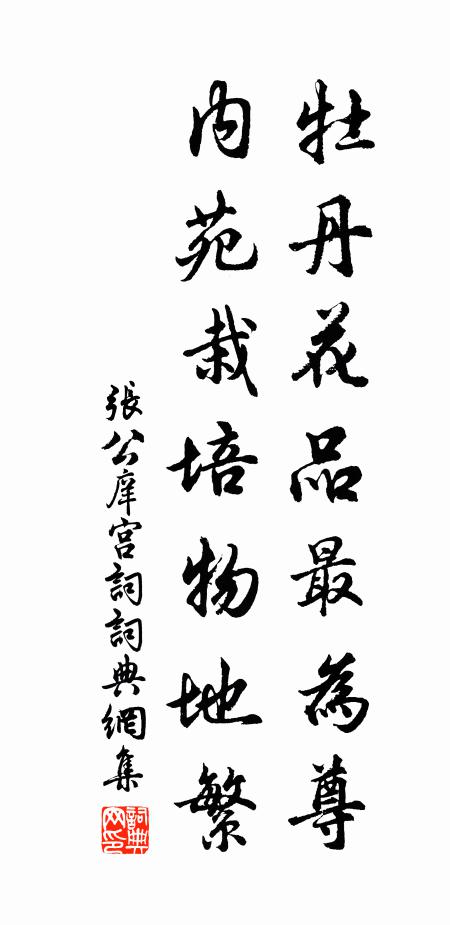 牡丹花品最為尊
内苑栽培物地繁
張公庠宮詞詞典網集
詞典网印